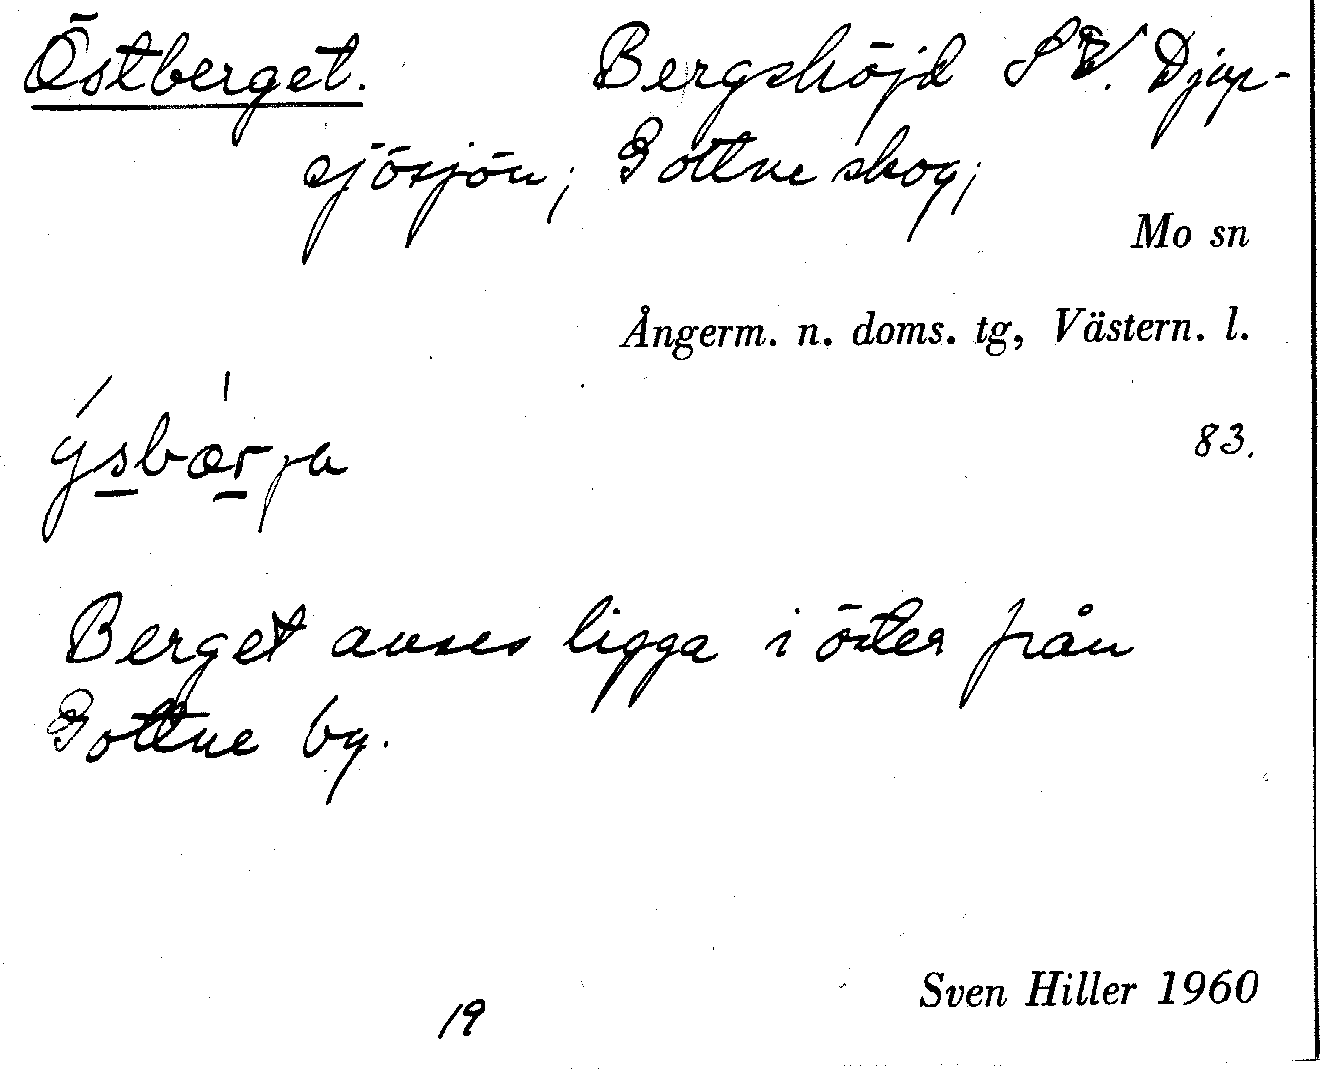 Östberget. Bergshöjd SV. Djup-
sjösjön; Gottne skog;
Mo sn
Ångerm. n. doms. tg, Västern. l.
83.
ýsbærja
Berget anses ligga i öster från
Gottne by.
Sven Hiller 1960
19